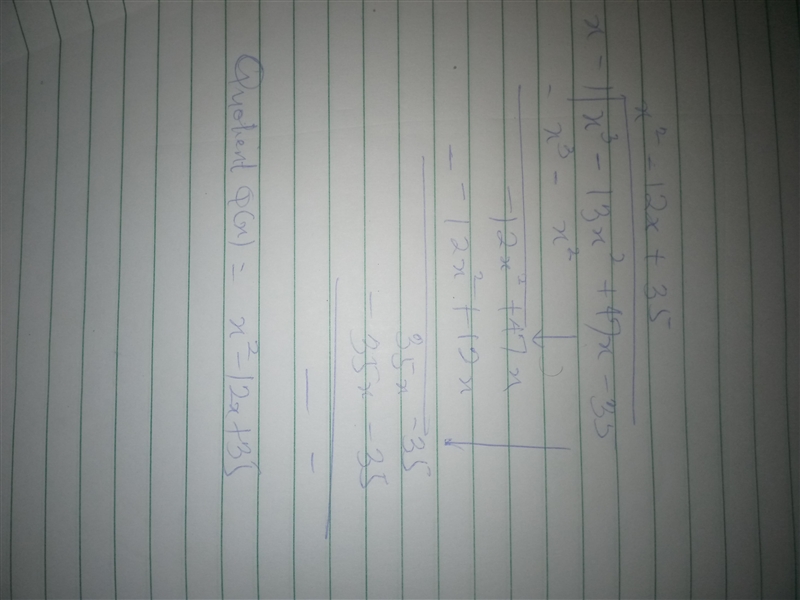 x² - 12x + 35
x - 1 | x³ - 13x² + 47x - 35
- x³ - x²
-12x² + 47x
- -12x² + 12x
35x - 35
- 35x - 35
- -
Quotient Q(x) = x² - 12x + 35